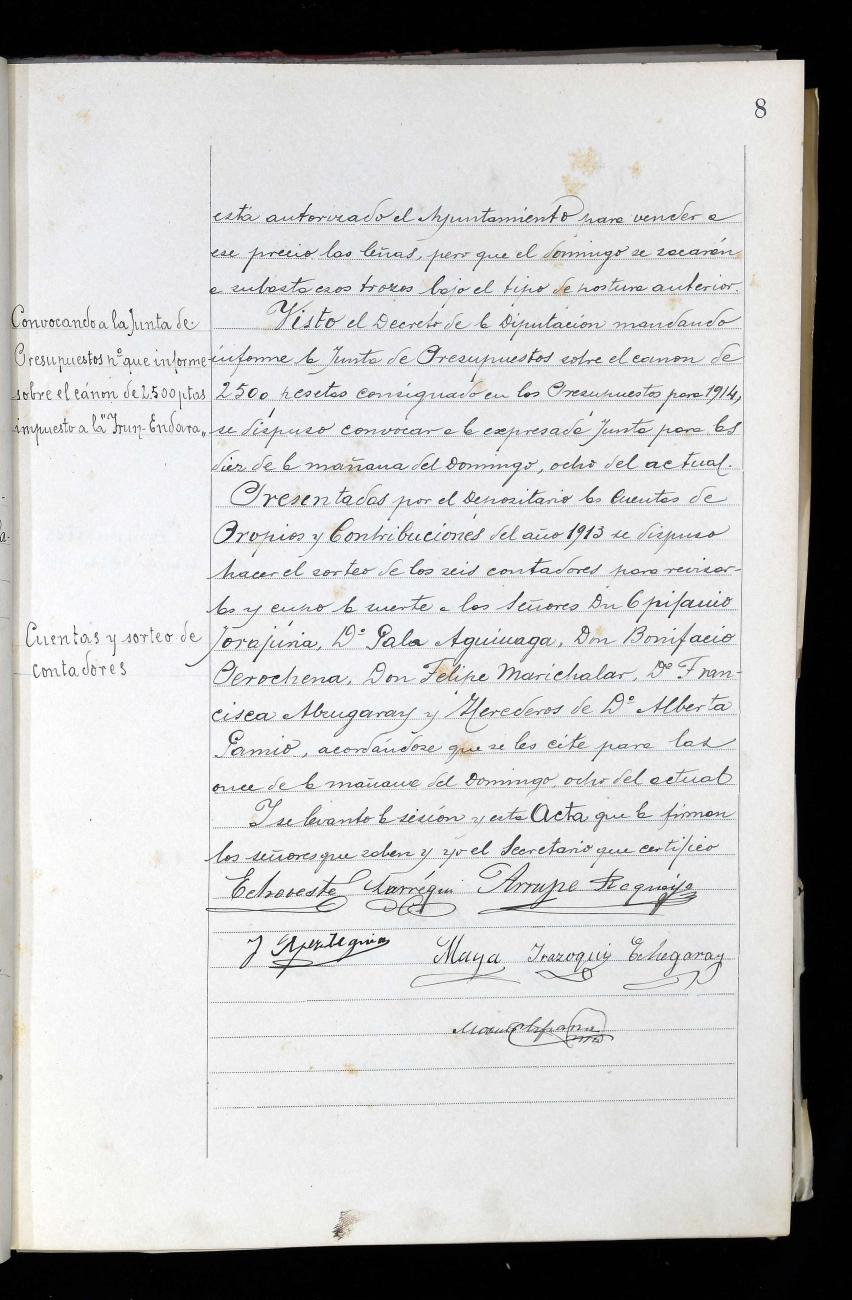 8
está autorizado el Ayuntamiento para vender a
ese precio las leñas, pero que el domingo se sacarán
a subasta esos trozos bajo el tipo de postura anterior.
Convocando a la Junta de
Presupuestos pª que informe
sobre el cánon de 2500 ptas
impuesto a la "Irun-Endara"
Visto el Decreto de la Diputación mandando
informe la Junta de Presupuestos sobre el canon de
2500 pesetas consignado en los Presupuestos para 1914,
se dispuso convocar a la expresada Junta para las
diez de la mañana del Domingo, ocho del actual.
Cuentas y sorteo de
contadores
Presentadas por el Depositario las Cuentas de
Propios y Contribuciones del año 1913 se dispuso
hacer el sorteo de los seis contadores para revisar-
las y cupo la suerte a los Señores Dn Epifanio
Iorajuria, Dª Pala Aguinaga, Don Bonifacio
Perochena, Don Felipe Marichalar, Dª Fran-
cisca Abugaray y Herederos de Dª Alberta
Pamio, acordándose que se les cite para las
once de la mañana del Domingo, ocho del actual
I se levanto la sesión y esta Acta que la firman
los señores que saben y yo el Secretario que certifico
Echoveste Larrégui Arrupe
J Apezteguia Maya Irazoqui Echegaray